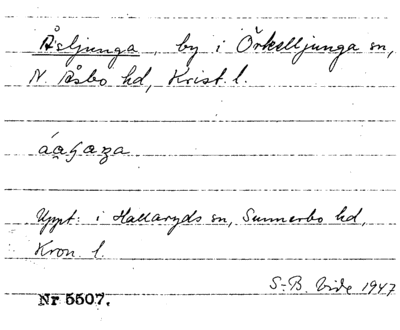 Åsljunga, by i Örkelljunga sn,
N. Åsbo hd, Krist. l.
Uppt. i Hallaryds sn, Sunnerbo hd,
Kron. l.
S-B. Vide 1947
Nr 5507.